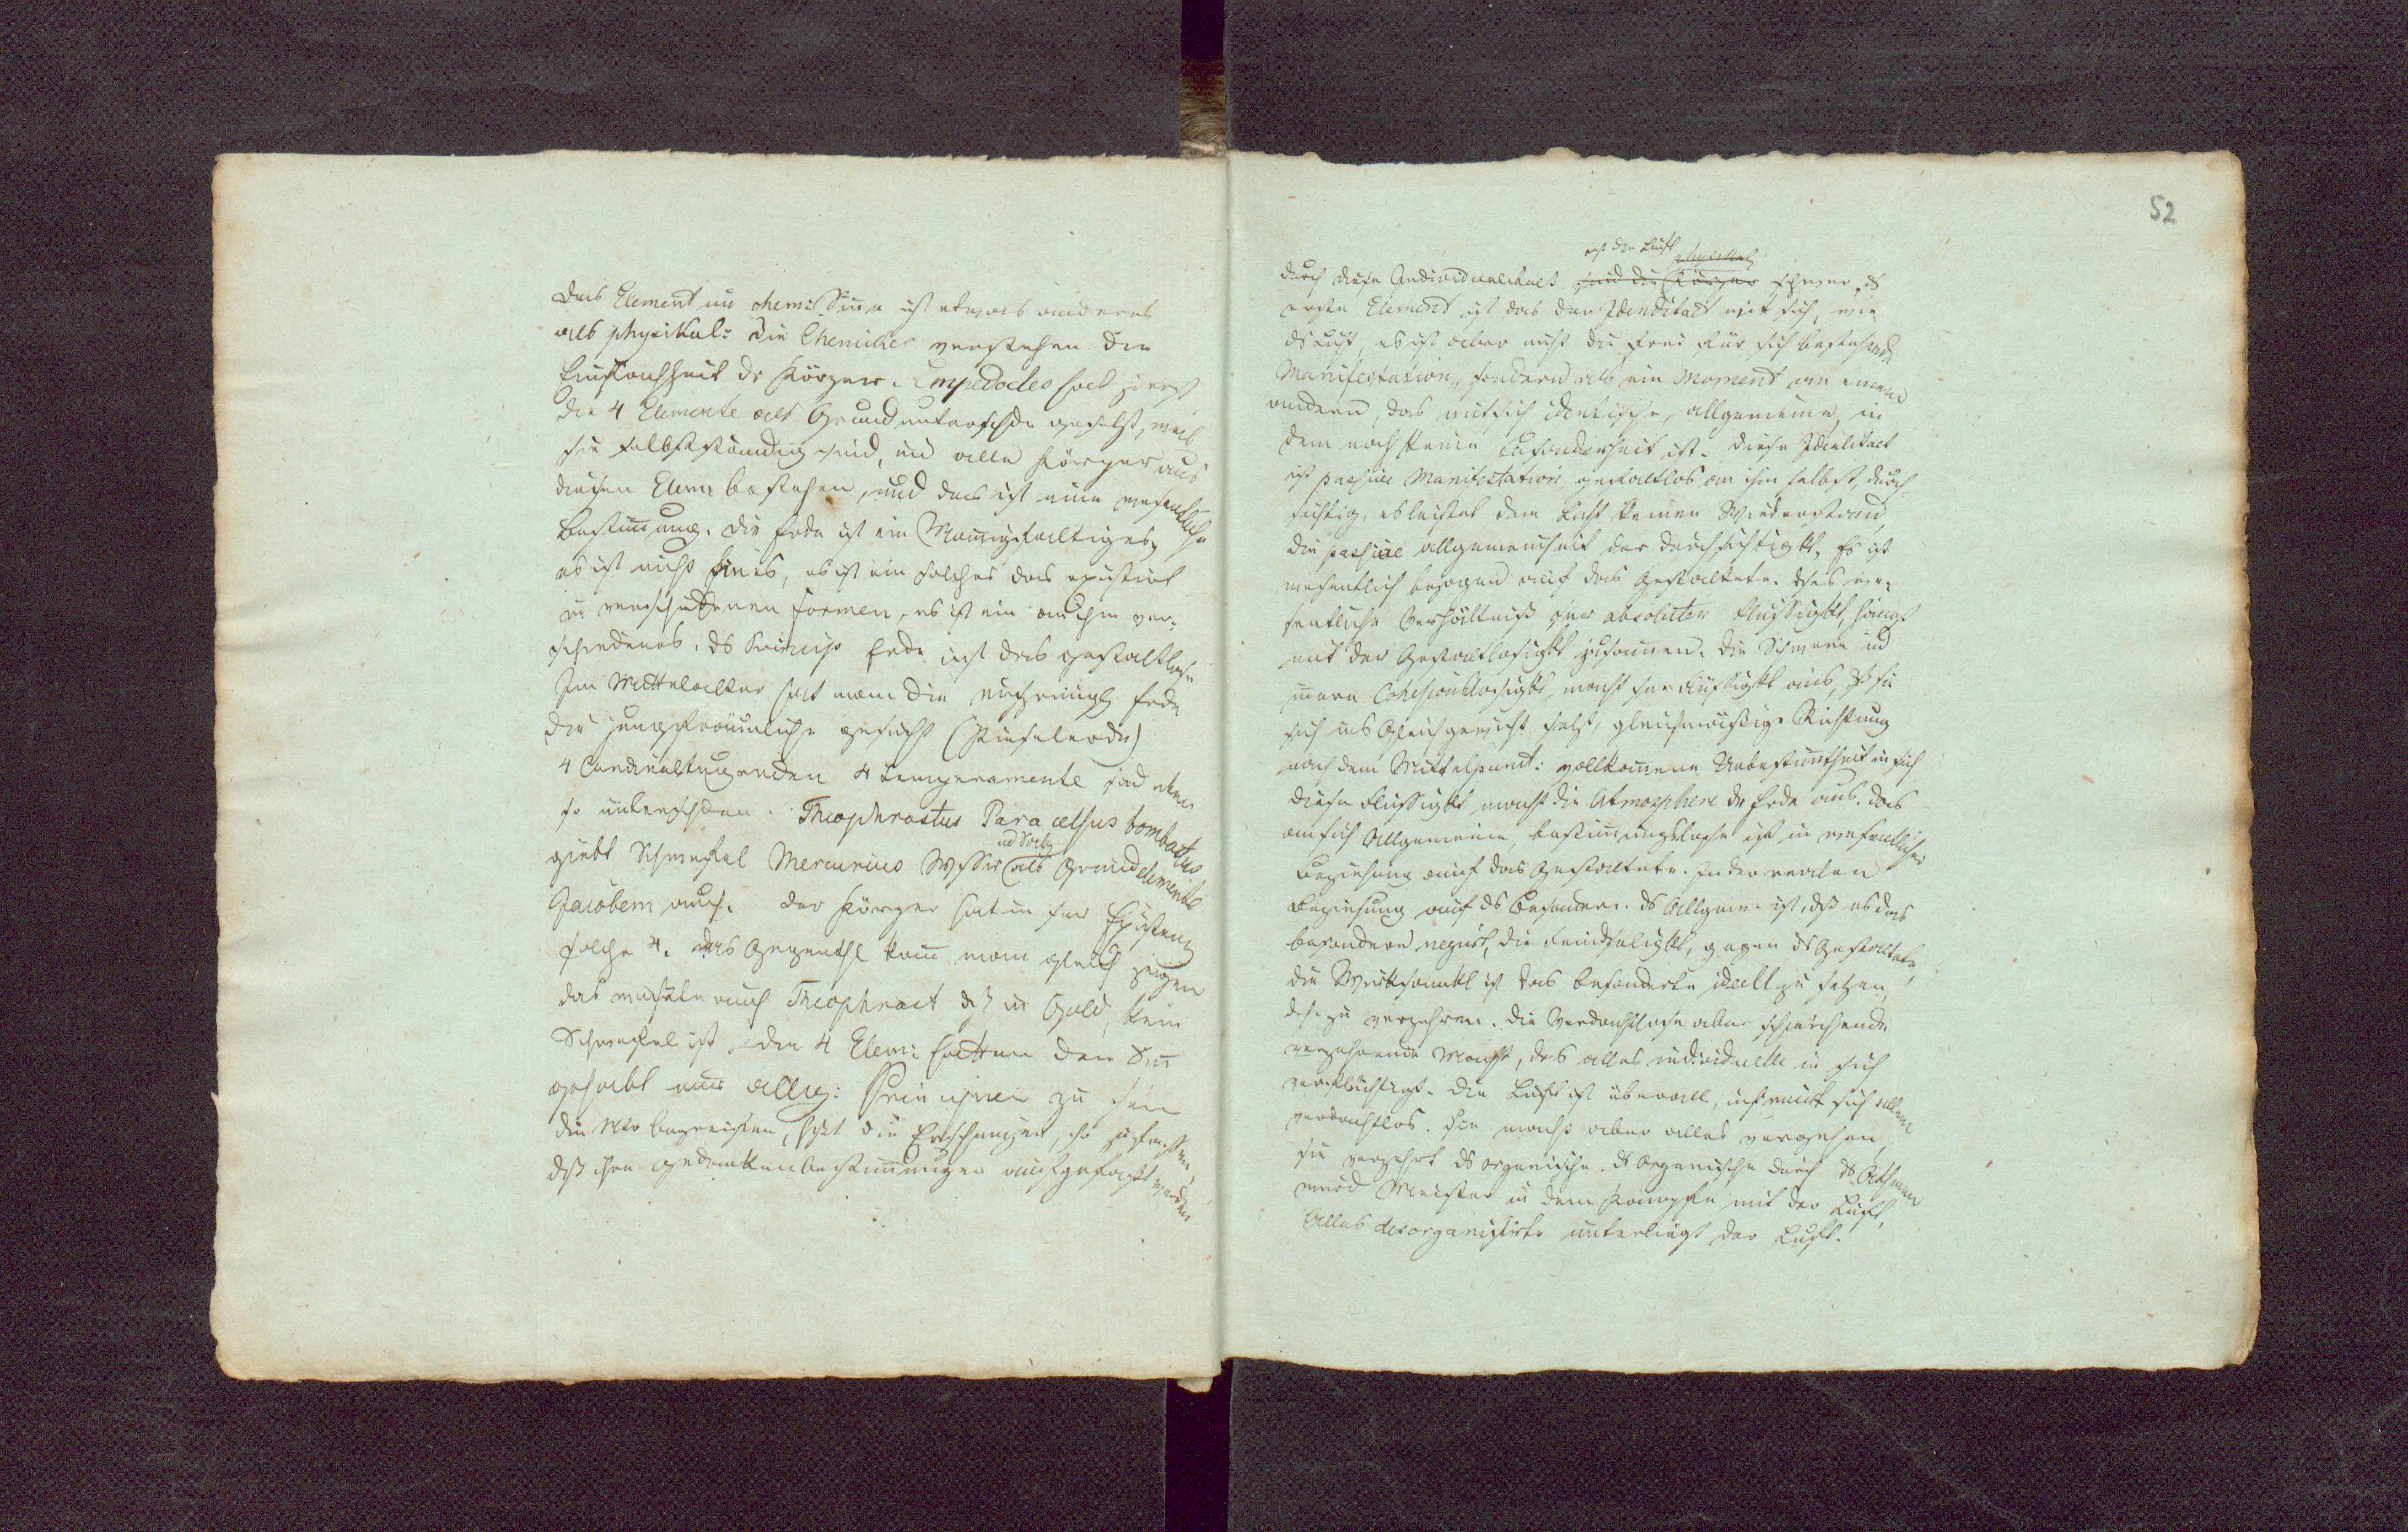 Das Element im chemi: Sinn ist etwas anderes
als physikal: Die Chemiker verstehen die
Einfachheit dr Körper. Empedocles hat zuerst
die 4 Elemente als Grundunterschde gesetzt, weil
sie selbstständig sind, und alle Körper aus
diesen Elem: bestehen, und das ist eine wesentliche
Bestimung. Die Erde ist ein Mannigfaltiges,
es ist nicht Eines, es ist ein solches das existirt
in verschiedenen Formen, es ist ein an ihm ver-
schiedenes. ds Princip Erde ist das gestaltlose
Im Mittelalter hat man die Erde
die jungfräuliche gesucht (Kieselerde)
4 Cardinaltugenden 4 Temperamente sind eben
so unterschden. Theophrastus Paracelsus bombastus
ud Salz
giebt Schwefel Mercurius Wasser als Grundelemente
Jacobem auch. Der Körper hat in sr Existenz
solche 4. das Gegenthl kann man gleich zeigen
das wußte auch Theophrast dß im Gold, kein
Schwefel ist. die 4 Elem: hatten den Sinn
gehabt nur allg: Principien zu sein
die Erschnungen, so zu fassen,
dß ihre Gedankenbestimmungen aufgefaßt werden
52
die Luft physikal
durch diese Individualitaet sind die Körper schwer. ds
erste Element ist das der Identitaet mit sich, wie
ds Licht, es ist aber nicht die frei für sich bestehende
Manifestation, sondern als ein Moment an einem
andern, das mit sich identische, allgemeine, in
dem noch keine Besonderheit ist. Diese Idealitaet
ist passive Manifestation, gestaltlos an ihm selbst, durch-
sichtig, es leistet dem Licht keinen Widerstand,
die passive allgemeinheit der Durchsichtigkt. Es ist
wesentlich bezogen auf das Gestaltete. Dies we-
sentliche Verhältniß absoluter Flüssigkt, hängt
mit der Gestaltlosigkt zusamen. Die Schwere ud
Cohesionslosigkt, macht Flüssigkt aus, dß sie
sich ins Gleichgewicht setzt, gleichmäßige Richtung
nach dem Mittelpunct: vollkommene Unbestimtheit in sich
diese Flüssigkt macht die Atmosphere dr Erde aus. das
an sich Allgemeine, bestimmungslose ist in wesentlicher
Beziehung auf das Gestaltete. In der realen
Beziehung auf ds Besondere. ds Allgem: ist, dß es das
besondere negirt, die Feindseligkt, gegen ds Gestaltete,
die Wirksamkt ist das besonderte ideell zu setzen,
d.h. zu verzehren. Die verdachtlose aber schleichende
verzehrende Macht, das alles individuelle in sich
verflüchtigt. Die Luft ist überall, insinuirt sich allem
verdachtlos. Sie macht aber alles vergehen,
sie verzehrt ds organische. ds Organische durch ds Athmen
wird Meister in dem Kampfe mit der Luft,
Alles desorganisirte unterliegt der Luft.